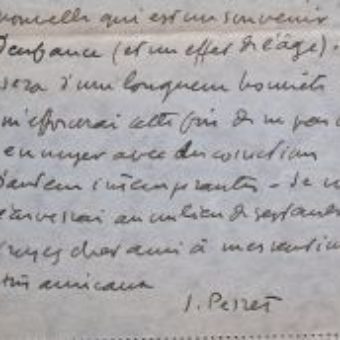 nouvelle qui est un souvenir
d'enfance (et un effet de l'âge).
sera d'une longueur honnête
m'efforcerai cette fois de ne pas
ennuyer avec des
d'auteur intempérantes - Je
au milieu de septembre
croyez cher ami à mes sentim
très amicaux
J. Perret